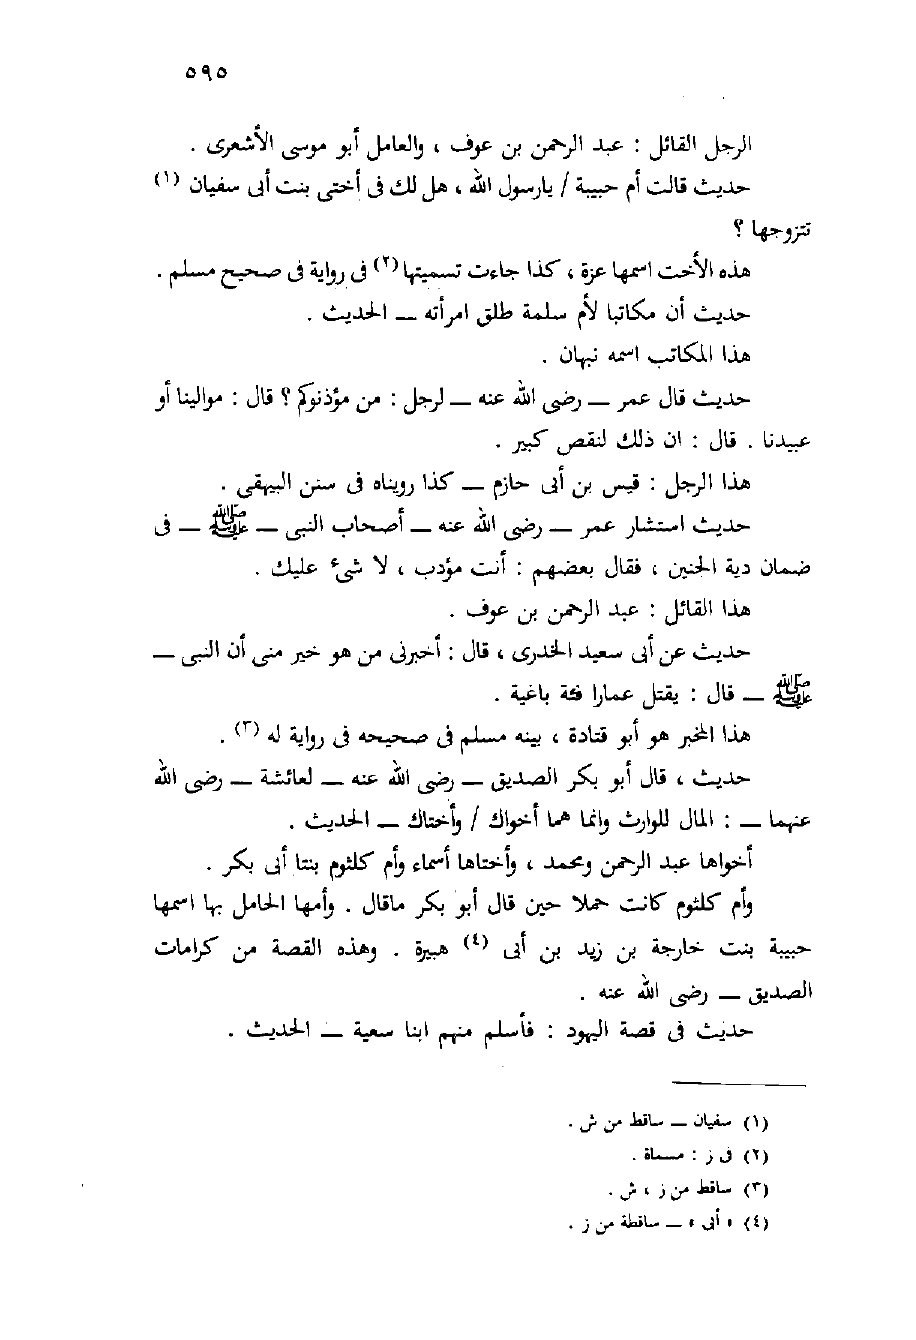 ٥٩٥
الرجل القائل : عبد الرحمن بن عوف ، والعامل أبو موسى الأشعرى .
حديث قالت أم حبيبة / يارسول الله ، هل لك فى أختى بنت أبى سفيان (١)
تتزوجها ؟
هذه الأخت اسمها عزة ، كذا جاءت تسميتها (٢) فى رواية فى صحيح مسلم .
حديث أن مكاتبا لأم سلمة طلق امرأته — الحديث .
هذا المكاتب اسمه نبهان .
حديث قال عمر — رضى الله عنه — لرجل : من مؤذنوكم ؟ قال : موالينا أو
عبيدنا . قال : ان ذلك لنقص كبير .
هذا الرجل : قيس بن أبى حازم — كذا رويناه فى سنن البيهقى .
حديث استشار عمر — رضى الله عنه — أصحاب النبى — ﷺ — فى
ضمان دية الجنين ، فقال بعضهم : أنت مؤدب ، لا شىء عليك .
هذا القائل : عبد الرحمن بن عوف .
حديث عن أبى سعيد الخدرى ، قال : أخبرنى من هو خير منى أن النبى —
ﷺ — قال : يقتل عمارا فئة باغية .
هذا المخبر هو أبو قتادة ، بينه مسلم فى صحيحه فى رواية له (٣) .
حديث ، قال أبو بكر الصديق — رضى الله عنه — لعائشة — رضى الله
عنهما — : المال للوارث وانما هما أخواك / وأختاك — الحديث .
أخواها عبد الرحمن ومحمد ، وأختاها أسماء وأم كلثوم بنتا أبى بكر .
وأم كلثوم كانت حملا حين قال أبو بكر ماقال . وأمها الحامل بها اسمها
حبيبة بنت خارجة بن زيد بن أبى (٤) هبيرة . وهذه القصة من كرامات
الصديق — رضى الله عنه .
حديث فى قصة اليهود : فأسلم منهم ابنا سعية — الحديث .
(١) سفيان — ساقط من ش .
(٢) فى ز : مسماة .
(٣) ساقط من ز ، ش .
(٤) « أبى » — ساقطة من ز .